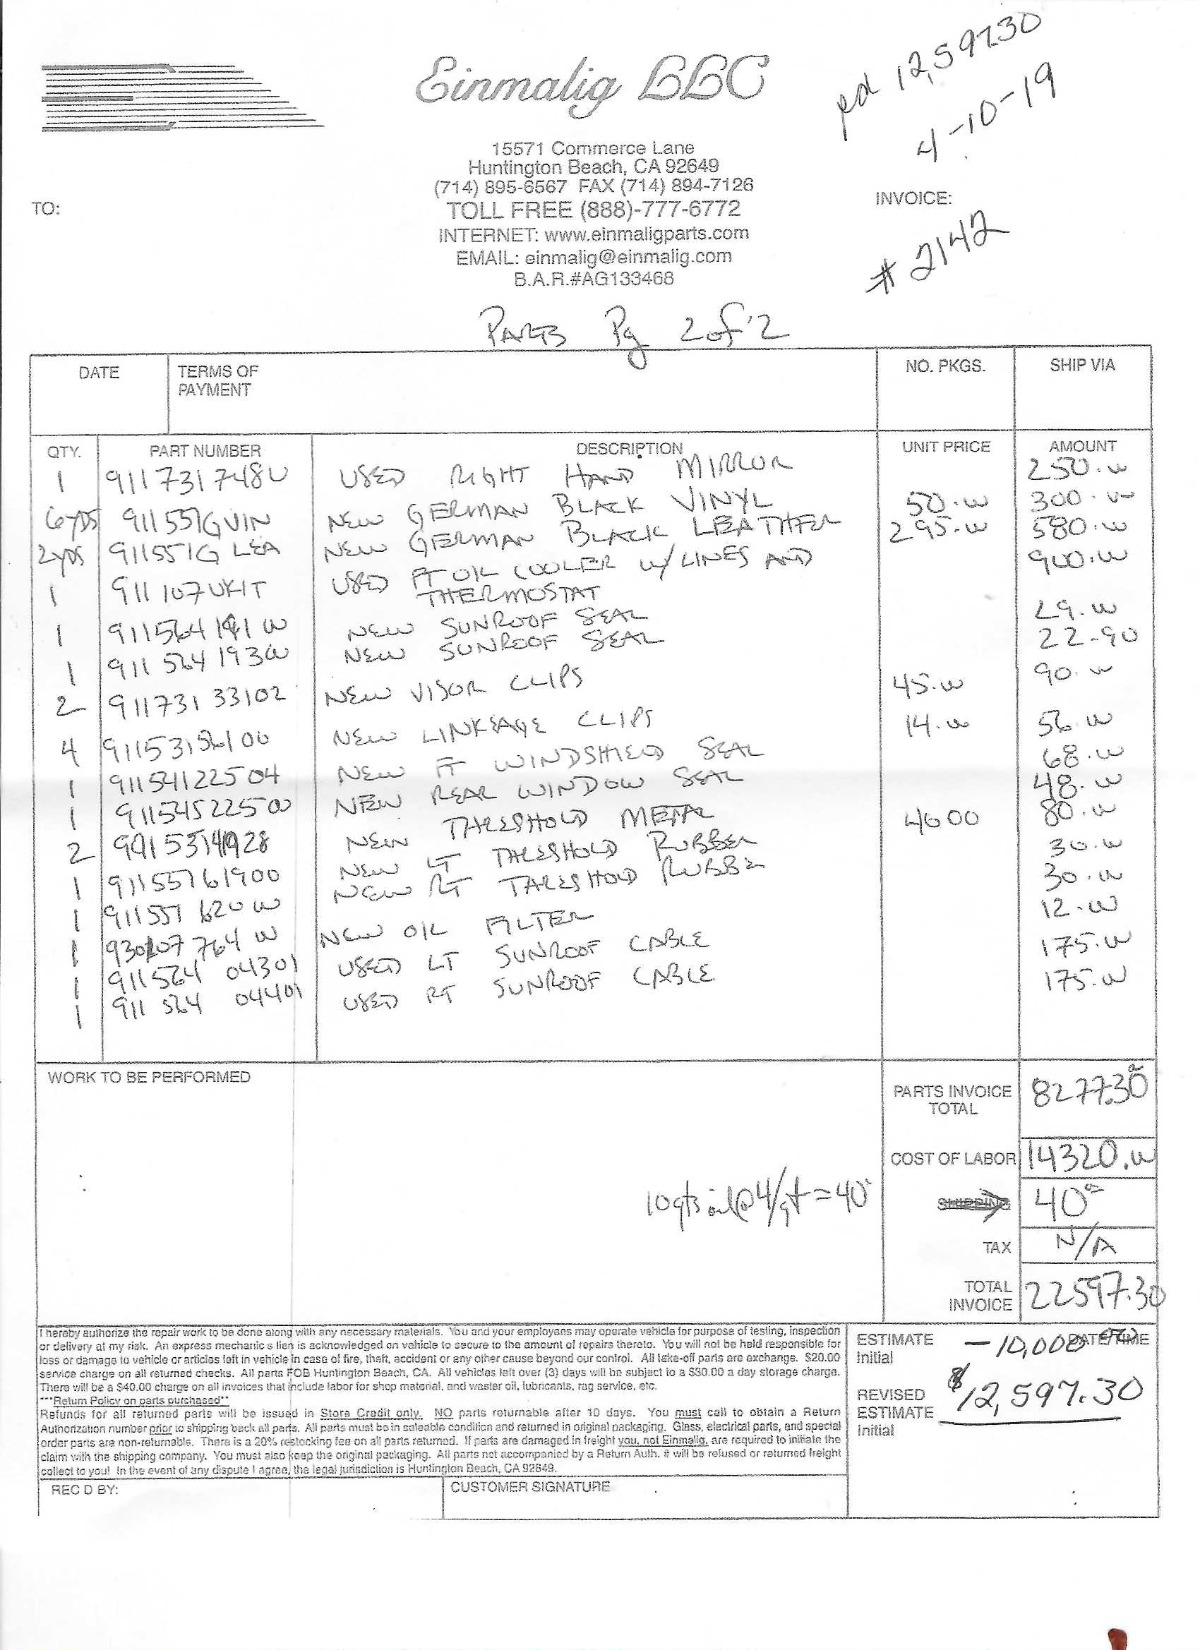 Einmalig LLC
pd 12,597.30
4-10-19
15571 Commerce Lane
Huntington Beach, CA 92649
(714) 895-6567 FAX (714) 894-7126
TOLL FREE (888)-777-6772
INTERNET: www.einmaligparts.com
EMAIL: einmalig@einmalig.com
B.A.R.#AG133468
TO:
INVOICE:
#2142
PARTS Pg 2 of 2
DATE TERMS OF PAYMENT NO. PKGS. SHIP VIA
QTY. PART NUMBER DESCRIPTION UNIT PRICE AMOUNT
1 911731748U USED RIGHT HAND MIRROR 250.00
6yds 911551GVIN NEW GERMAN BLACK VINYL 50.00 300.00
2yds 911551G LEA NEW GERMAN BLACK LEATHER 295.00 580.00
1 911107UKIT USED FT OIL COOLER W/LINES AND 900.00
THERMOSTAT
1 911564191 00 NEW SUNROOF SEAL 29.00
1 911 564 19300 NEW SUNROOF SEAL 22.90
2 911731 33102 NEW VISOR CLIPS 45.00 90.00
4 91153156100 NEW LINKEAGE CLIPS 14.00 56.00
1 91154122504 NEW FT WINDSHIELD SEAL 68.00
1 91154522500 NEW REAR WINDOW SEAL 48.00
2 NEW THRESHOLD METAL 4000 80.00
1 91155761900 NEW LT THRESHOLD RUBBER 30.00
1 911551 620 00 NEW RT THRESHOLD RUBBE 30.00
1 930107 764 00 NEW OIL FILTER 12.00
1 911564 04301 USED LT SUNROOF CABLE 175.00
1 911 564 04401 USED RT SUNROOF CABLE 175.00
WORK TO BE PERFORMED
PARTS INVOICE TOTAL 8277.30
COST OF LABOR 14320.00
10qts oil@4/qt=40 SHIPPING 40
TAX N/A
TOTAL INVOICE 22597.30
I hereby authorize the repair work to be done along with any necessary materials. You and your employees may operate vehicle for purpose of testing, inspection
or delivery at my risk. An express mechanic's lien is acknowledged on vehicle to secure to the amount of repairs thereto. You will not be held responsible for
loss or damage to vehicle or articles left in vehicle in case of fire, theft, accident or any other cause beyond our control. All take-off parts are exchange. $20.00
service charge on all returned checks. All parts FOB Huntington Beach, CA. All vehicles left over (3) days will be subject to a $30.00 a day storage charge.
There will be a $40.00 charge on all invoices that include labor for shop material, and waster oil, lubricants, rag service, etc.
***Return Policy on parts purchased**
Refunds for all returned parts will be issued in Store Credit only. NO parts returnable after 10 days. You must call to obtain a Return
Authorization number prior to shipping back all parts. All parts must be in saleable condition and returned in original packaging. Glass, electrical parts, and special
order parts are non-returnable. There is a 20% restocking fee on all parts returned. If parts are damaged in freight you, not Einmalig, are required to initiate the
claim with the shipping company. You must also keep the original packaging. All parts not accompanied by a Return Auth. # will be refused or returned freight
collect to you! In the event of any dispute I agree, the legal jurisdiction is Huntington Beach, CA 92649.
ESTIMATE Initial -10,000 DATE/TIME
REVISED ESTIMATE Initial $12,597.30
REC D BY: CUSTOMER SIGNATURE